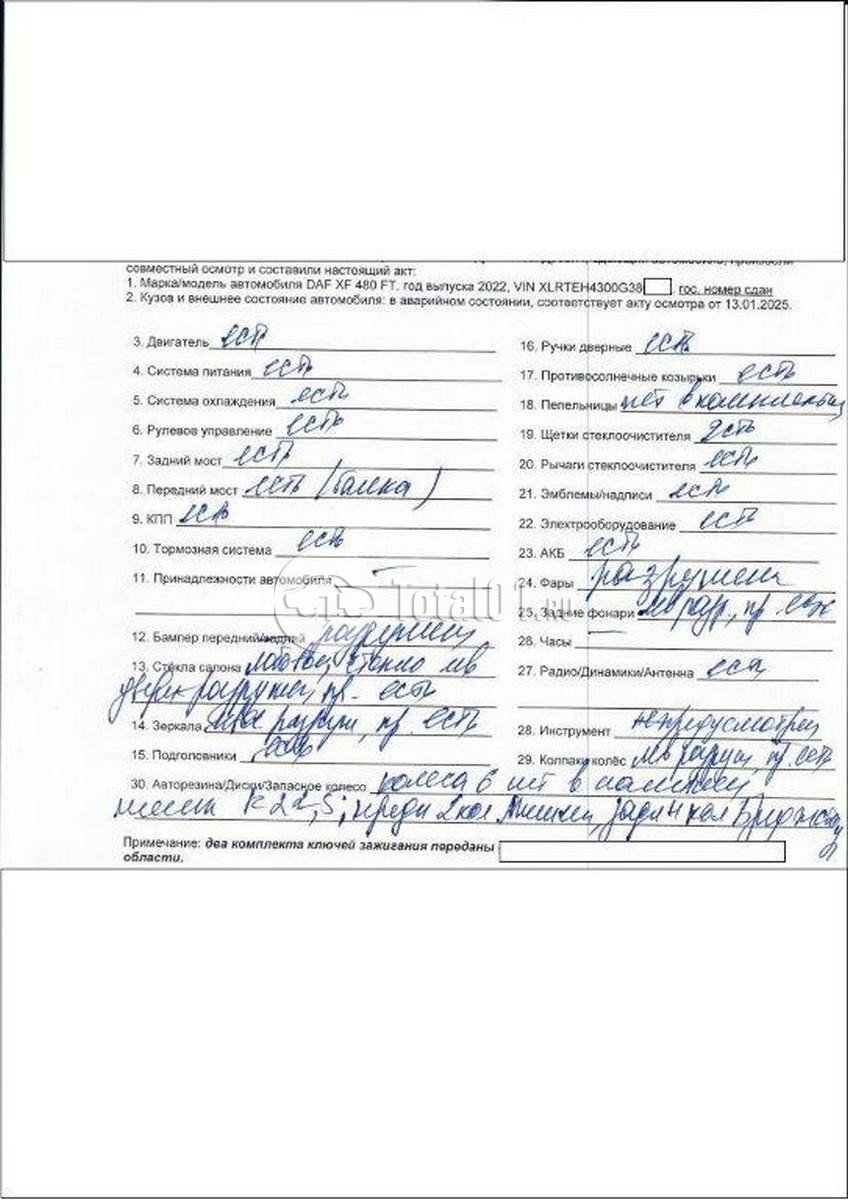 совместный осмотр и составили настоящий акт:
1. Марка/модель автомобиля DAF XF 480 FT, год выпуска 2022, VIN XLRTEH4300G38 , гос. номер сдан
2. Кузов и внешнее состояние автомобиля: в аварийном состоянии, соответствует акту осмотра от 13.01.2025.
3. Двигатель есть
4. Система питания есть
5. Система охлаждения есть
6. Рулевое управление есть
7. Задний мост есть
8. Передний мост есть (балка)
9. КПП есть
10. Тормозная система есть
11. Принадлежности автомобиля —
12. Бампер передний/задний разрушен
13. Стёкла салона лобовое, стекло лв
двери разрушен, пр. есть
14. Зеркала разруш, пр. есть
15. Подголовники есть
16. Ручки дверные есть
17. Противосолнечные козырьки есть
18. Пепельницы нет в комплектации
19. Щетки стеклоочистителя есть
20. Рычаги стеклоочистителя есть
21. Эмблемы/надписи есть
22. Электрооборудование есть
23. АКБ есть
24. Фары разрушены
25. Задние фонари лв разр, пр. есть
26. Часы —
27. Радио/Динамики/Антенна есть
28. Инструмент не предусмотрен
29. Колпаки колёс лв разруш, пр. есть
30. Авторезина/Диски/Запасное колесо колеса 6 шт в
R 22,5; перед 2 кол зад 4 кол
Примечание: два комплекта ключей зажигания переданы
области.
Total01.ru